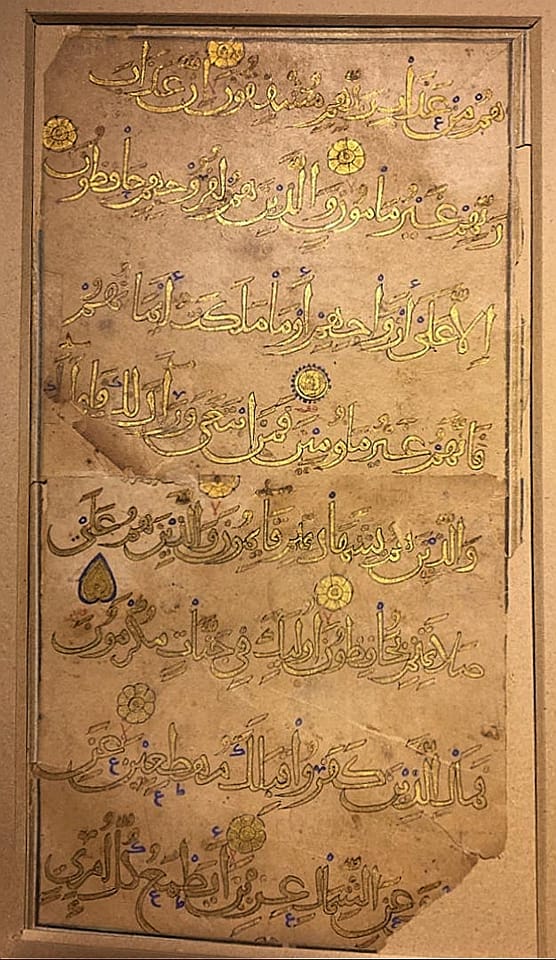 هُم مِّنْ عَذَابِ رَبِّهِم مُّشْفِقُونَ إِنَّ عَذَابَ
رَبِّهِمْ غَيْرُ مَأْمُونٍ وَالَّذِينَ هُمْ لِفُرُوجِهِمْ حَافِظُونَ
إِلَّا عَلَىٰ أَزْوَاجِهِمْ أَوْ مَا مَلَكَتْ أَيْمَانُهُمْ
فَإِنَّهُمْ غَيْرُ مَلُومِينَ فَمَنِ ابْتَغَىٰ وَرَاءَ ذَٰلِكَ فَأُولَٰئِكَ
وَالَّذِينَ هُم بِشَهَادَاتِهِمْ قَائِمُونَ وَالَّذِينَ هُمْ عَلَىٰ
صَلَاتِهِمْ يُحَافِظُونَ أُولَٰئِكَ فِي جَنَّاتٍ مُّكْرَمُونَ
فَمَالِ الَّذِينَ كَفَرُوا قِبَلَكَ مُهْطِعِينَ عَنِ
وَعَنِ الشِّمَالِ عِزِينَ أَيَطْمَعُ كُلُّ امْرِئٍ